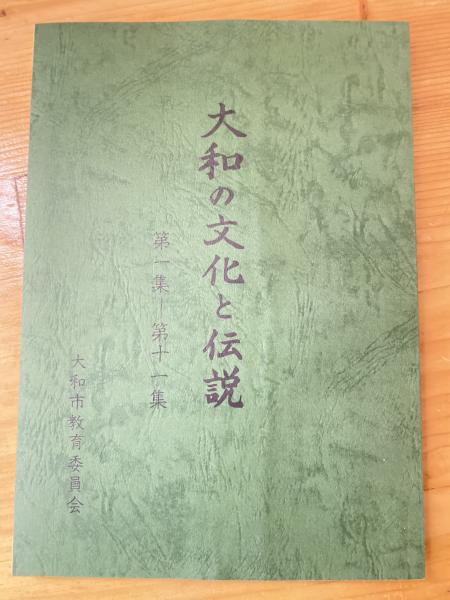 大和の文化と伝説
第一集―第十一集
大和市教育委員会